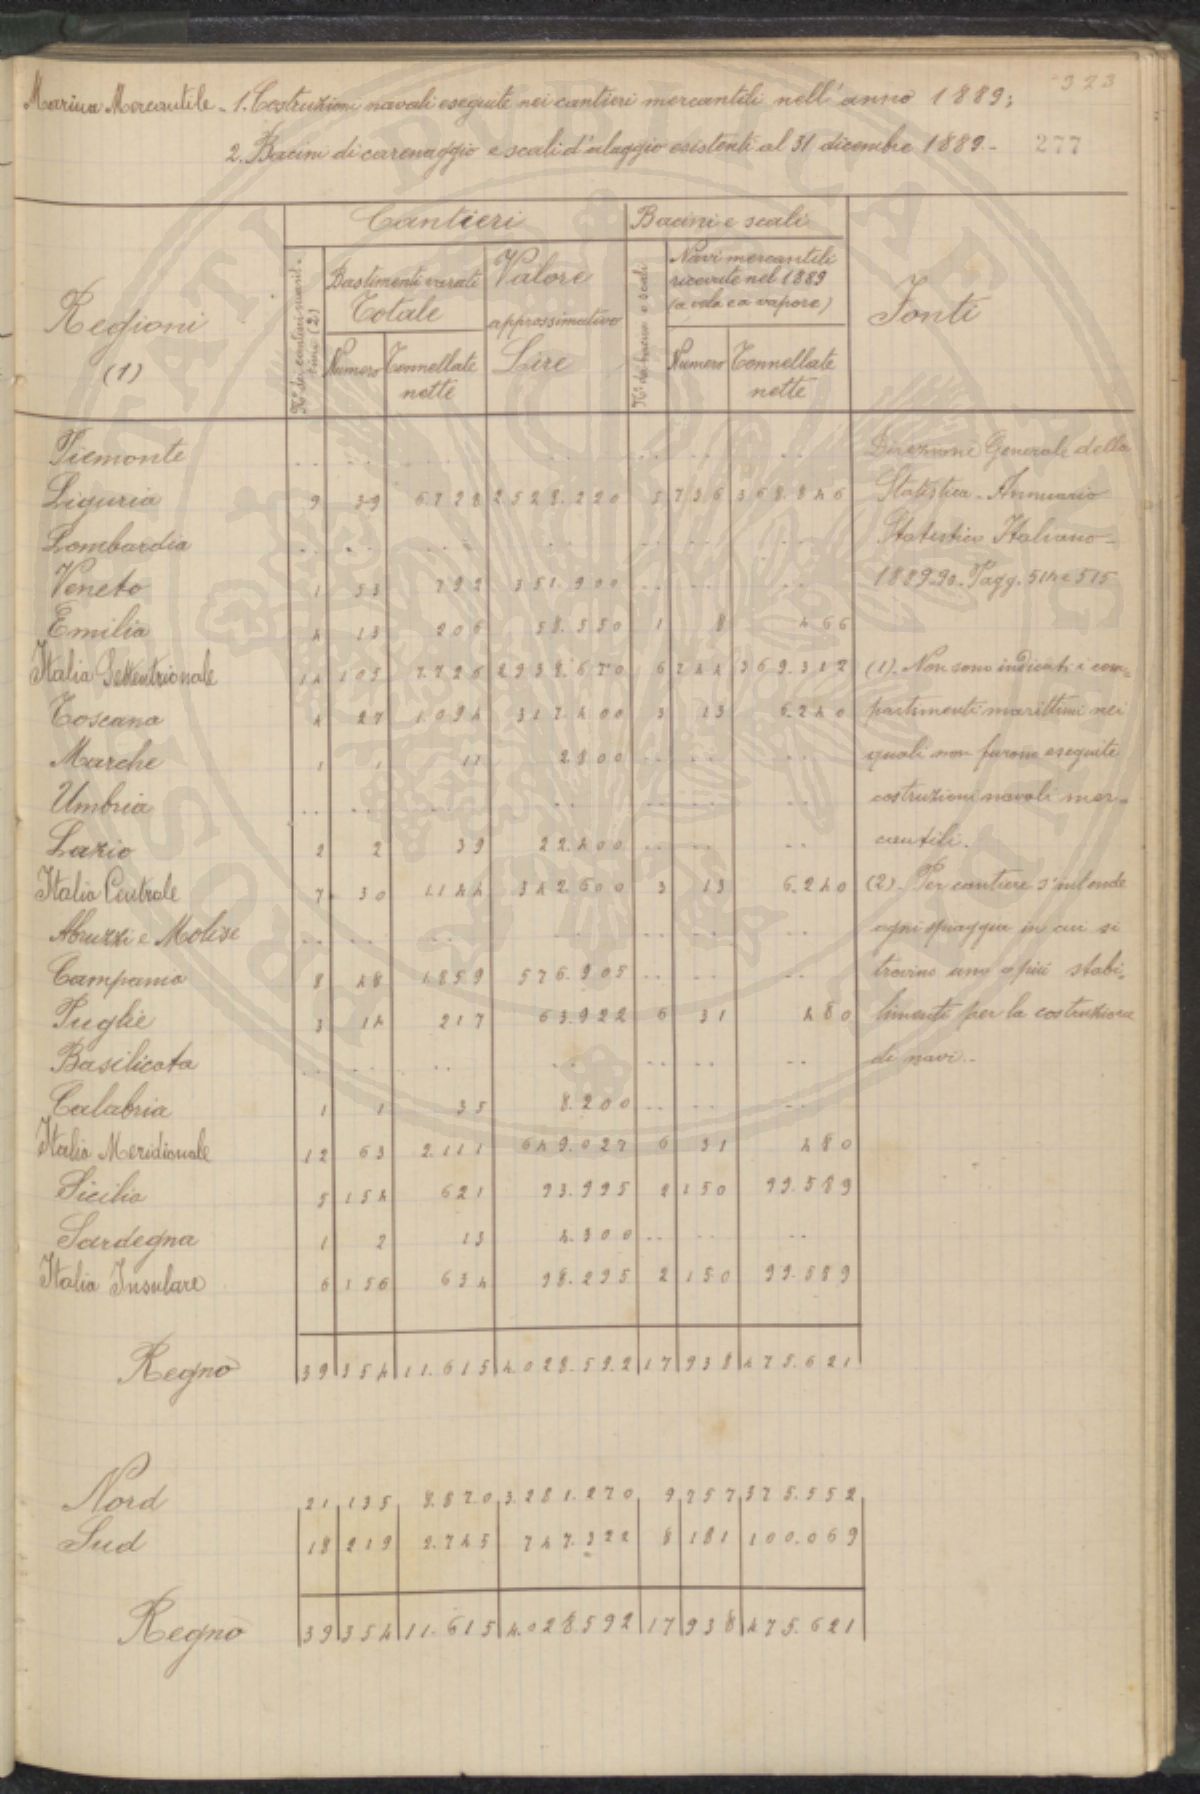 323
Marina Mercantile - 1. Costruzioni navali eseguite nei cantieri mercantili nell'anno 1889;
2. Bacini di carenaggio e scali d'alaggio esistenti al 31 dicembre 1889.-
277
Regioni
(1)
Cantieri
Bacini e scali
Fonti
Bastimenti varati
Totale
Valore
approssimativo
Lire
Navi mercantili
ricevute nel 1889
(a vela e a vapore)
Numero
Tonnellate
nette
N.° di bacini e scali
Numero
Tonnellate
nette
Piemonte .. .. .. .. .. .. ..
Liguria 9 39 6.728 2.528.220 5 736 368.846
Lombardia .. .. .. .. .. .. ..
Veneto 1 53 792 351.900 .. .. ..
Emilia 4 13 206 58.550 1 8 466
Italia Settentrionale 14 105 7.726 2.938.670 6 744 369.312
Toscana 4 27 1.094 317.400 3 13 6.240
Marche 1 1 11 2.800 .. .. ..
Umbria .. .. .. .. .. .. ..
Lazio 2 2 39 22.400 .. .. ..
Italia Centrale 7 30 1.144 342.600 3 13 6.240
Abruzzi e Molise .. .. .. .. .. .. ..
Campania 8 48 1.859 576.905 .. .. ..
Puglie 3 14 217 63.922 6 31 480
Basilicata .. .. .. .. .. .. ..
Calabria 1 1 35 8.200 .. .. ..
Italia Meridionale 12 63 2.111 649.027 6 31 480
Sicilia 5 154 621 93.995 2 150 99.589
Sardegna 1 2 13 4.300 .. .. ..
Italia Insulare 6 156 634 98.295 2 150 99.589
Regno 39 354 11.615 4.028.592 17 938 475.621
Nord 21 135 8.870 3.281.270 9 757 375.552
Sud 18 219 2.745 747.322 8 181 100.069
Regno 39 354 11.615 4.028.592 17 938 475.621
Direzione Generale della
Statistica - Annuario
Statistico Italiano -
1889-90 - Pagg. 514 e 515
(1). Non sono indicati i com-
partimenti marittimi nei
quali non furono eseguite
costruzioni navali mer-
cantili.
(2). Per cantiere s'intende
ogni spiaggia in cui si
trovino uno o più stabi-
limenti per la costruzione
di navi.-